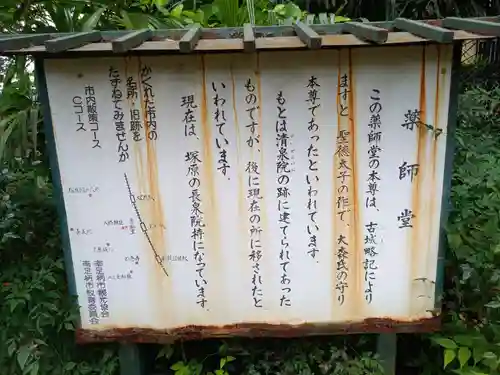 薬師堂
この薬師堂の本尊は、古城略記により
ますと、聖徳太子の作で、大森氏の守り
本尊であったといわれています。
もとは清泉院の跡に建てられてあった
ものですが、後に現在の所に移されたと
いわれています。
現在は、塚原の長泉院持になっています。
かくれた市内の
名所・旧跡を
たずねてみませんか
市内散策コース
Cコース
南足柄市観光協会
南足柄市教育委員会